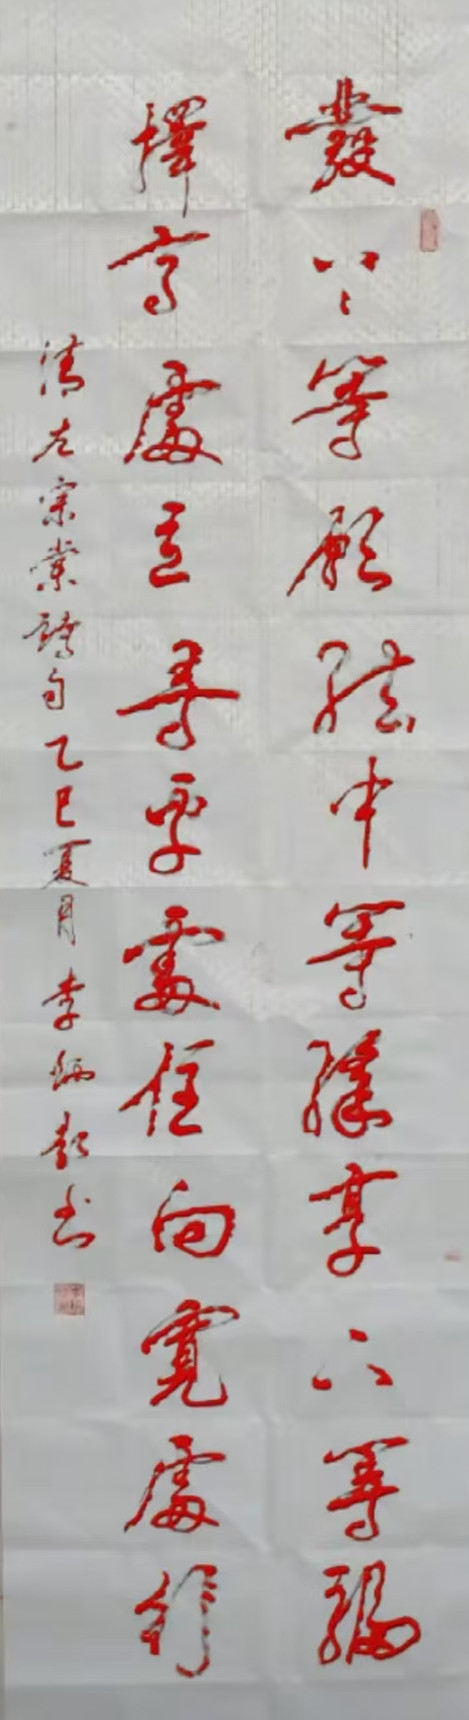 發上等願結中等緣享下等福
擇高處立尋平處住向寬處行
清左宗棠詩句乙巳夏月李炳彰书